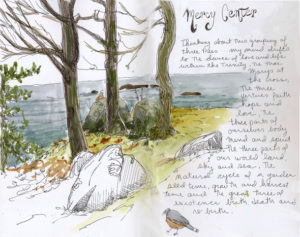 Mercy Center
Thinking about this grouping of
three trees - my mind drifts
to the dance of love and life
within the Trinity, the three
Marys at
the cross,
the three
virtues faith
hope and
love, the
three parts of
ourselves body
mind and spirit
the three parts of
our world land
sky and sea. The
natural cycle of a garden
seed time, growth and harvest
time and the great three of
existence birth death and
re birth.